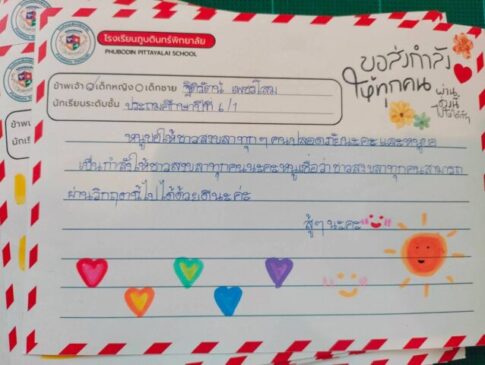 โรงเรียนภูบดินทร์พิทยาลัย
PHUBODIN PITTAYALAI SCHOOL
ขอส่งกำลัง
ให้ทุกคน
ผ่าน
ไปให้ได้
ข้าพเจ้า เด็กหญิง เด็กชาย
นักเรียนระดับชั้น ประถมศึกษาปีที่ 6/1
หนูขอให้ชาวสงขลาทุกๆคนปลอดภัยนะคะ และหนูขอ
เป็นกำลังให้ชาวสงขลาทุกคนนะคะหนูเชื่อว่าชาวสงขลาทุกคนสามารถ
ผ่านวิกฤตินี้ไปได้ด้วยดีนะค่ะ
สู้ๆนะคะ